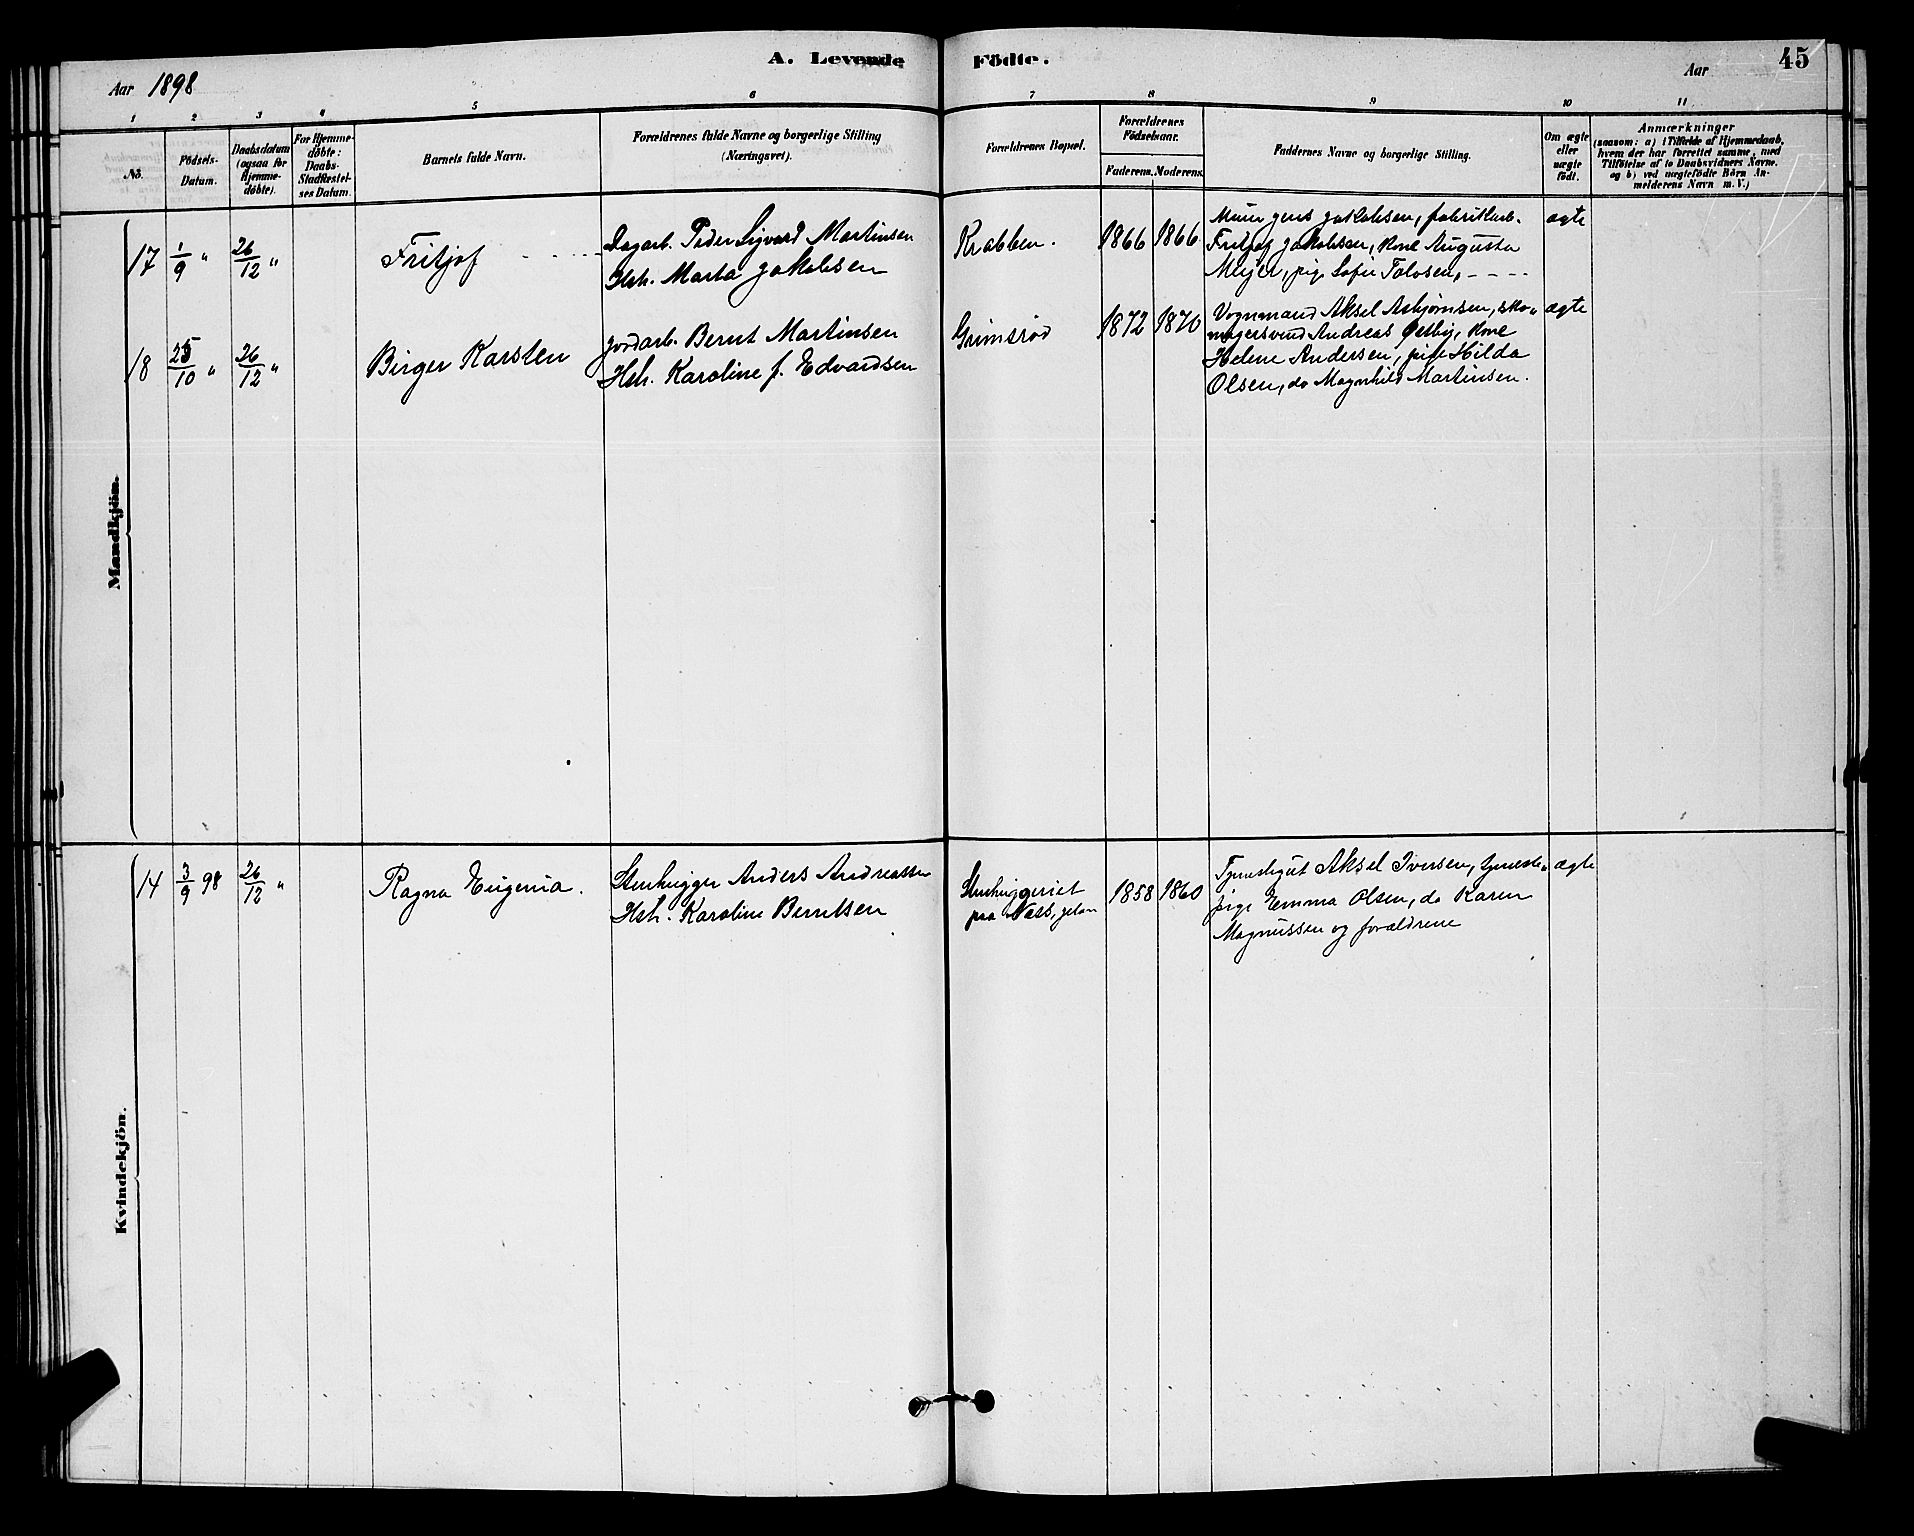 A. Levende Födte.
45
Aar 1898
Aar
1 2 3 4 5 6 7 8 9 10 11
No.
Födsels-
Datum.
Daabsdatum
(ogsaa for
Hjemme-
döbte).
For Hjemme-
döbte:
Daabs-
Stadfæstel-
ses Datum.
Barnets fulde Navn.
Forældrenes fulde Navne og borgerlige Stilling
(Næringsvei).
Forældrenes Bopæl.
Forældrenes
Födselsaar.
Faderens. Moderens.
Faddernes Navne og borgerlige Stilling.
Om ægte
eller
uægte
födt.
Anmærkninger
(saasom: a) i Tilfælde af Hjemmedaab,
hvem der har forrettet samme, med
Tilföielse af to Daabsvidners Navne.
og b) ved uægtefödte Börn An-
melderens Navn m. V.)
Mandkjön.
17 1/9 " 26/12 "
Fritjof
Dagarb. Peder Sigvard Martinsen
Hstr. Marta Jakobsen
Krabben.
1866 1866
Murer Jens Jakobsen, fabrikarb.
Fritjof Jakobsen, Kone Augusta
Meyer, pige Sofie Tolosen,
ægte
18 25/10 " 26/12 "
Birger Karsten
Jordarb. Bernt Martinsen
Hstr. Karoline f. Edvardsen
Grimsrød
1872 1870
Vognmand Aksel Asbjørnsen, sko-
magersvend Andreas Østby, Kone
Helene Andersen, pige Hilda
Olsen, do Magnhild Martinsen.
ægte
Kvindekjön.
14 3/9 98 26/12 "
Ragna Eugenia.
Stenhugger Anders Andreassen
Hstr. Karoline Berntsen
Stenhuggeriet
paa Næs, Jeløen
1858 1860
Tjenestegut Aksel Iversen, tjeneste-
pige Emma Olsen, do Karen
Magnussen og forældrene
ægte